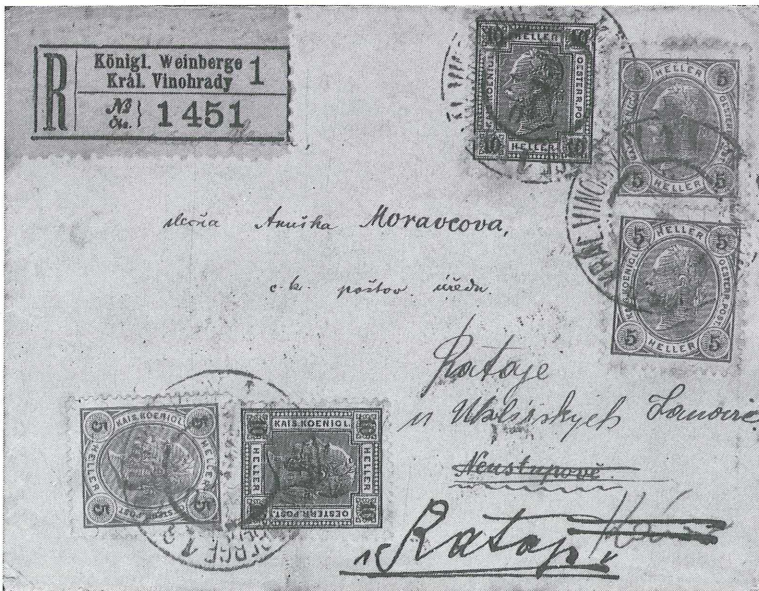 R
Königl. Weinberge 1
Král. Vinohrady
№ Čís. } 1451
10 HELLER 10
KAIS. KOENIGL. OESTERR. POST.
10 HELLER 10
5 HELLER 5
KAIS. KOENIGL. OESTERR. POST.
5 HELLER 5
5 HELLER 5
KAIS. KOENIGL. OESTERR. POST.
5 HELLER 5
KRÁL. VINO
slečna Anuška Moravcova,
c. k. poštov. úředn.
Rataje
u Uhlířských Janovic
Neustupově
"Rataje"
5 KAIS. KOENIGL. 5
HELLER HELLER
5 OESTERR. POST. 5
10 KAIS. KOENIGL. 10
HELLER HELLER
10 OESTERR. POST. 10
BERGE 1